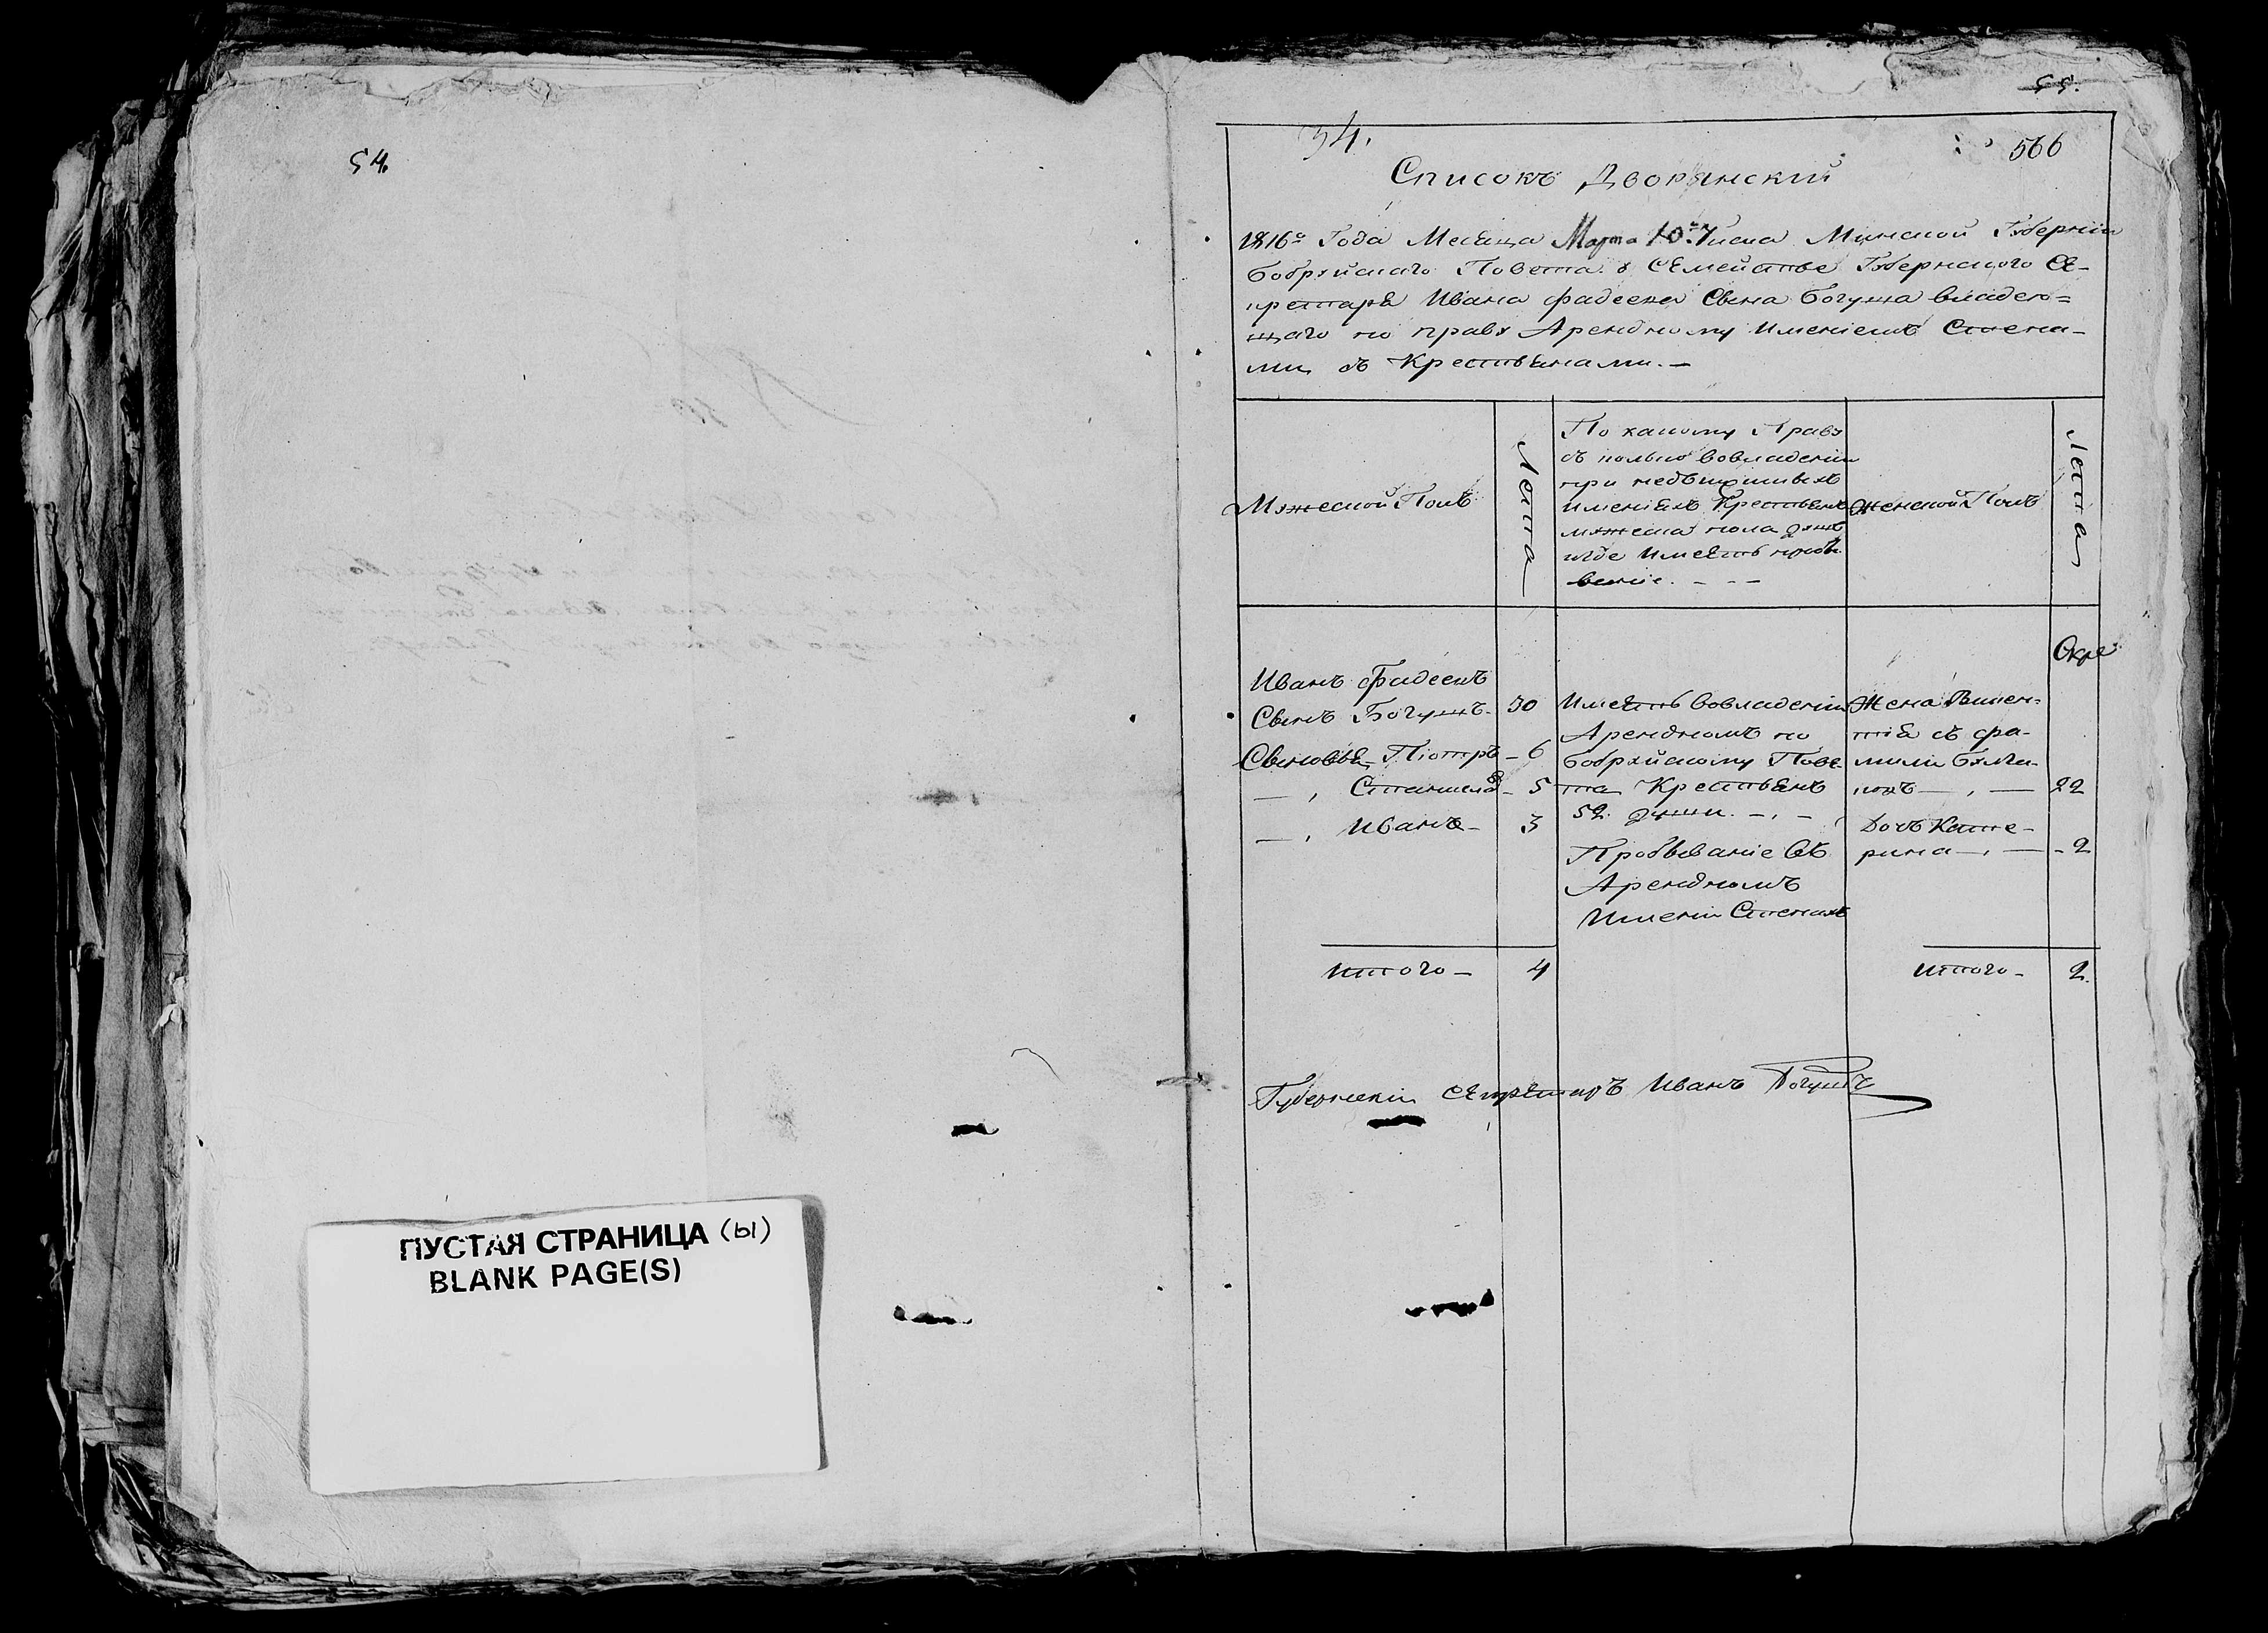 54.
ПУСТАЯ СТРАНИЦА (ы)
BLANK PAGE(S)
55.
34.
566
Списокъ Дворянский
1816го Года Месяца Марта 10го Числа Минской Губернии
бобруйскаго Повета о Семействе Губернского Се-
кретаря Ивана фадеева Сына Богуша владею=
щаго по праву Арендному Имениемъ Стена-
ми съ Крестьянами.—
Мужеской Полъ
Лета
По какому Праву
съ
во владении
при недвижимыхъ
именияхъ Крестьянъ
мужеска пола душъ
и где Имеетъ пребы
вание. - - -
Женской Полъ
Лета
Иванъ Фадеевъ
Сынъ Богушъ. 30
Сыновья Пiотръ - 6
— , Станиславъ - 5
— , Иванъ - 3
Имеетъ во владении
Арендномъ по
бобруйскому Пове-
та Крестьянъ
52 души. -,-
Пробывание въ
Арендномъ
Имении Стенахъ
Жена Винцен-
тiя съ фа-
милии
— , — 22
Дочь Кате-
рина — , — - 2
Итого - 4
Итого - 2.
Губернский секретарь Иванъ Богушъ